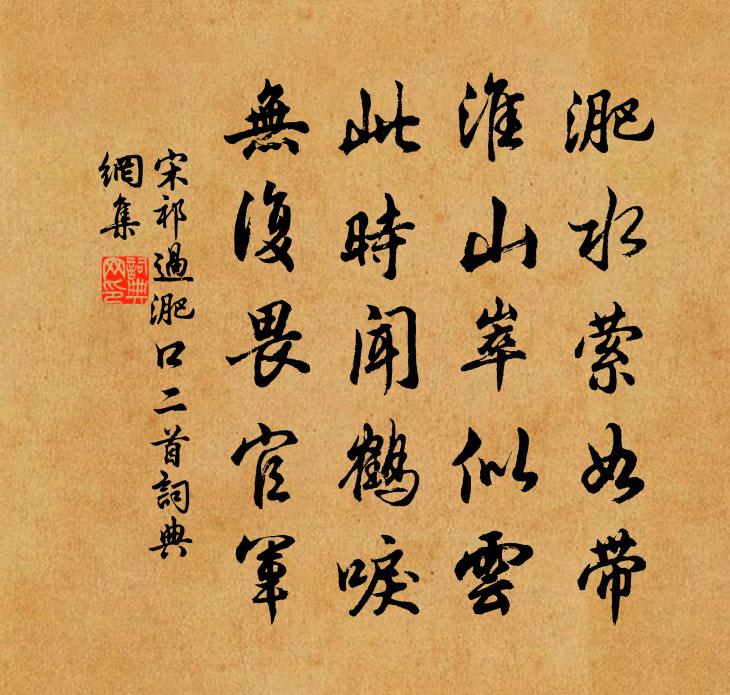 淝水萦如带
淮山崒似雲
此時聞鶴唳
無復畏官軍
宋祁過淝口二首詞典
網集
詞典
网印